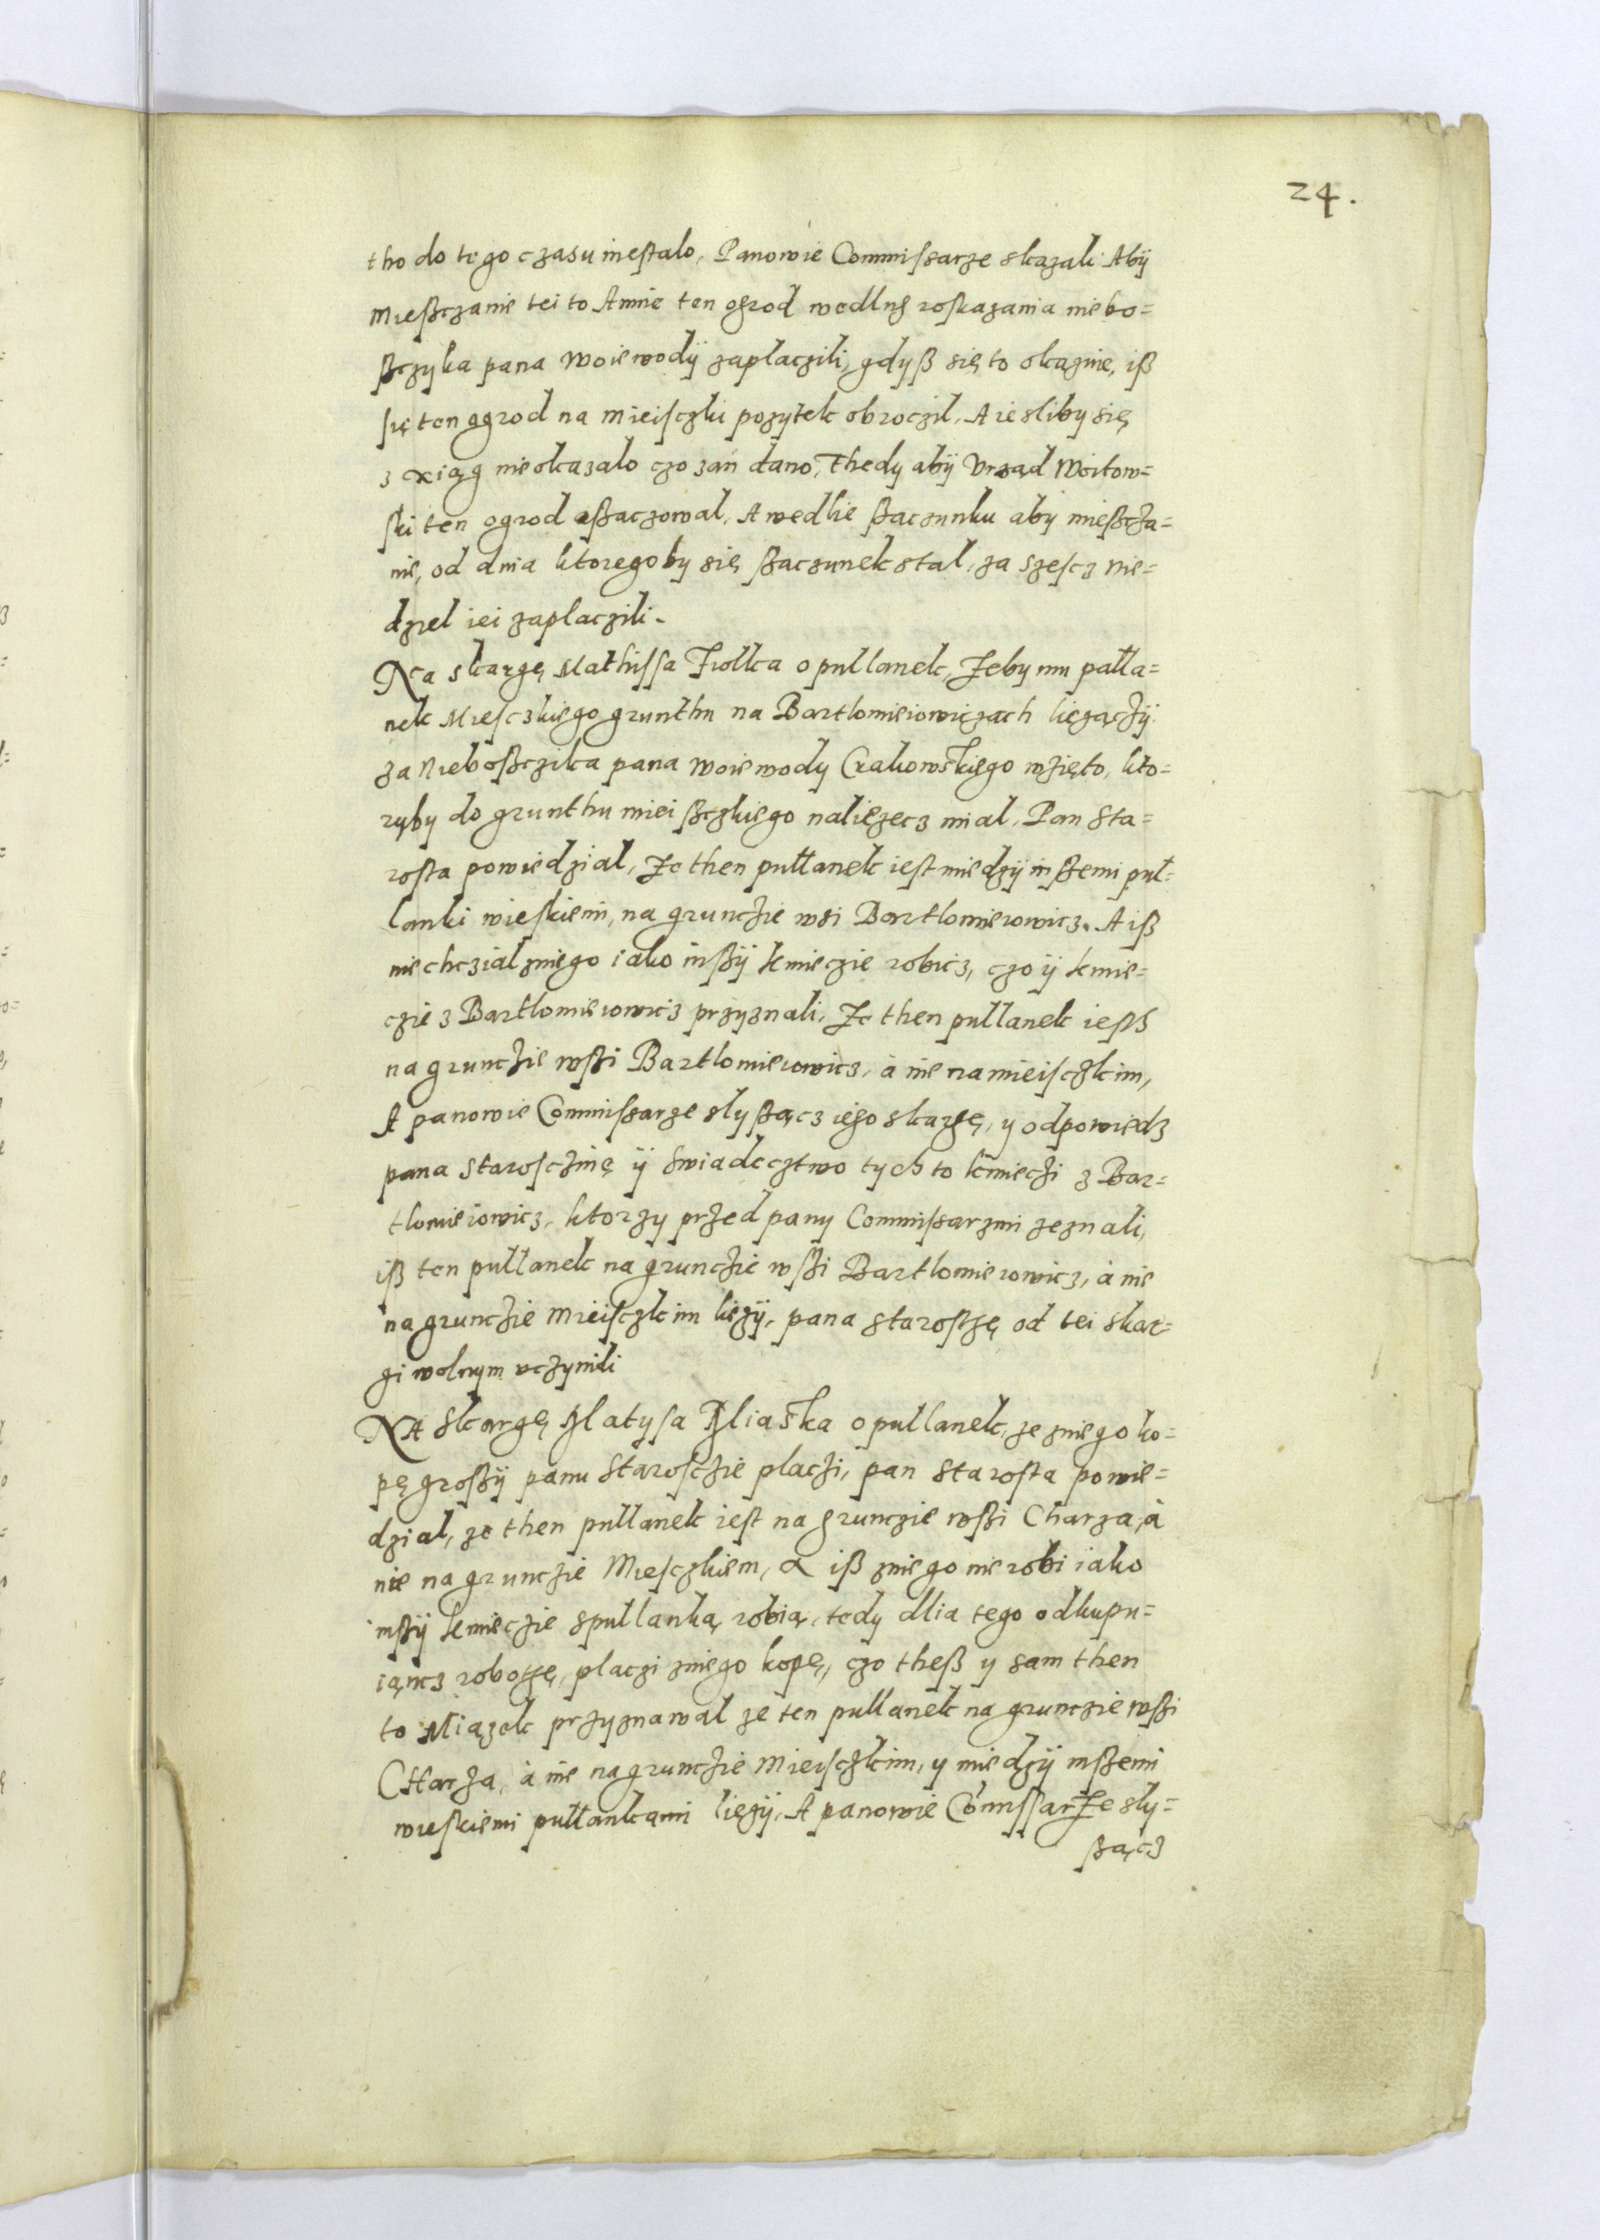 24.
tho do tego czasu niestalo, Panowie Commissarze skazali Abÿ
Miesczanie tei to Annie ten ogrod wedlug roskazania niebo=
sczyka pana Woiewodÿ zaplaczili, gdyß się to okaznie, iß
się ten ogrod na mieisczki pozytek obroczil. A iesliby się
z xiąg nieokazalo czo zań dano, Thedy abÿ Vrząd Woitow=
ski ten ogrod oßaczowal, A wedlie ßaczunku aby mießcza=
nie, od dnia ktoregoby się ßaczunek stal, za szescz nie=
dziel iei zaplaczili.
Na skargę Mathissa Fiolka o pullanek, Żeby mu pulla=
nek Miesczkiego grunthu na Bartlomieiowiczach lieżączÿ
za Nieboßczika pana Woiewody Crakowskiego wzięto, kto=
ryby do grunthu mieisczkiego nalieżecz mial, Pan Sta=
rosta powiedzial, Że then pullanek iest miedzÿ inßemi pul=
lanki wieskiemi, na grunczie wsi Bartlomieiowicz. A iß
niechczial zniego iako inßÿ kmieczie robicz, czo ÿ kmie=
czie z Bartlomieiowicz przyznali, Że then pullanek iesth
na grunczie wßi Bartlomieiowicz, à nie na mieisczkim,
A panowie Commissarze slyßącz iego skargę, y odpowiedz
pana Starosczinę ÿ swiadecztwo tych to kmieczi z Bar=
tlomieiowicz, ktorzy przed pany Commissarzmi zeznali,
iß ten pullanek na grunczie wßi Bartlomieiowicz, à nie
na grunczie Mieisczkim lieżÿ, pana Starostę od tei skar=
gi wolnym uczynili
NA Skargę Matysa Iliaska o pullanek, ze zniego ko=
pę großÿ panu Starosczie placzi, pan Starosta powie=
dzial, ze then pullanek iest na grunczie wßi Charza, à
nie na grunczie Miesczkiem, A iß zniego nie robi iako
inßÿ kmieczie spullanką robią, tedy dlia tego odkupu=
iącz robotę, placzi zniego kopę, czo theß y sam then
to Miązek przyznawal ze ten pullanek na grunczie wßi
CHarza, à nie na grunczie Mieisczkim, y miedzÿ inßemi
wieskiemi pullankami lieżÿ, A panowie Comissarze sly=
ßącz